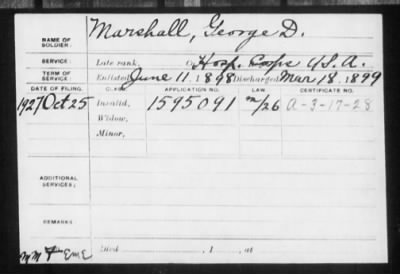 NAME OF SOLDIER: Marshall, George D.
SERVICE: Late rank, Hosp. Corps U.S.A.
TERM OF SERVICE: Enlisted June 11, 1898 Discharged Mar 18, 1899
DATE OF FILING. CLASS. APPLICATION NO. LAW. CERTIFICATE NO.
1927 Oct 25 Invalid, 1595091 m/26 A-3-17-28
Widow,
Minor,
ADDITIONAL SERVICES:
REMARKS:
Died , 1 , at
MM EME